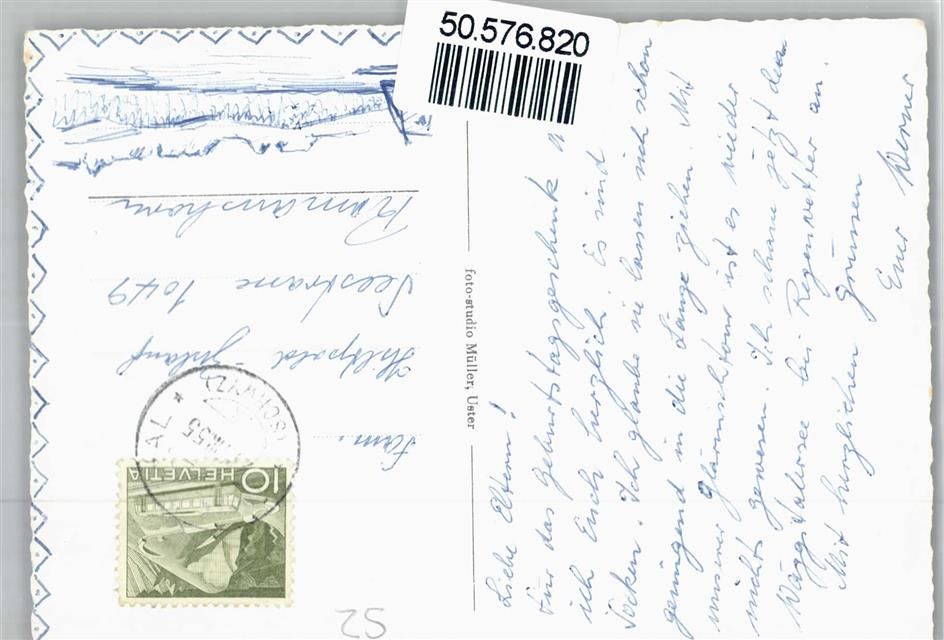 50.576.820
Liebe Eltern!
Für das Geburtstagsgeschenk
ich Euch herzlich. Es sind
Socken. Ich glaube sie lassen sich schon
genügend in die Länge ziehen. Mit
unserer Glärnischtour ist es wieder
nichts gewesen. Ich schaue jetzt den
Wäggitalersee bei Regenwetter an.
Mit herzlichen Grüssen
Euer Werner
foto-studio Müller, Uster
Fam.
Hiltpold -
Seestrasse 1049
Romanshorn
(SCHWYZ)
55
HELVETIA
10
52